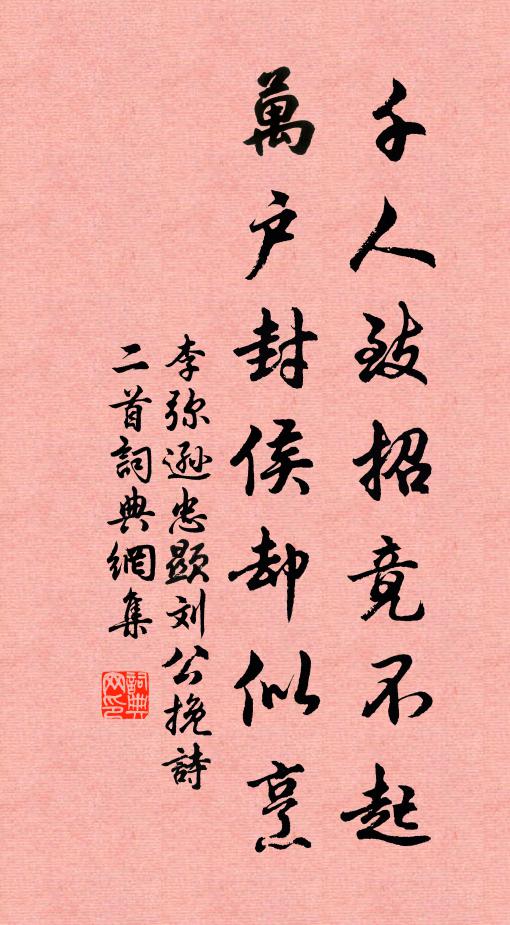 千人致招竟不起
萬户封侯却似烹
李弥遜忠顯刘公挽詩
二首詞典網集
詞典
网印